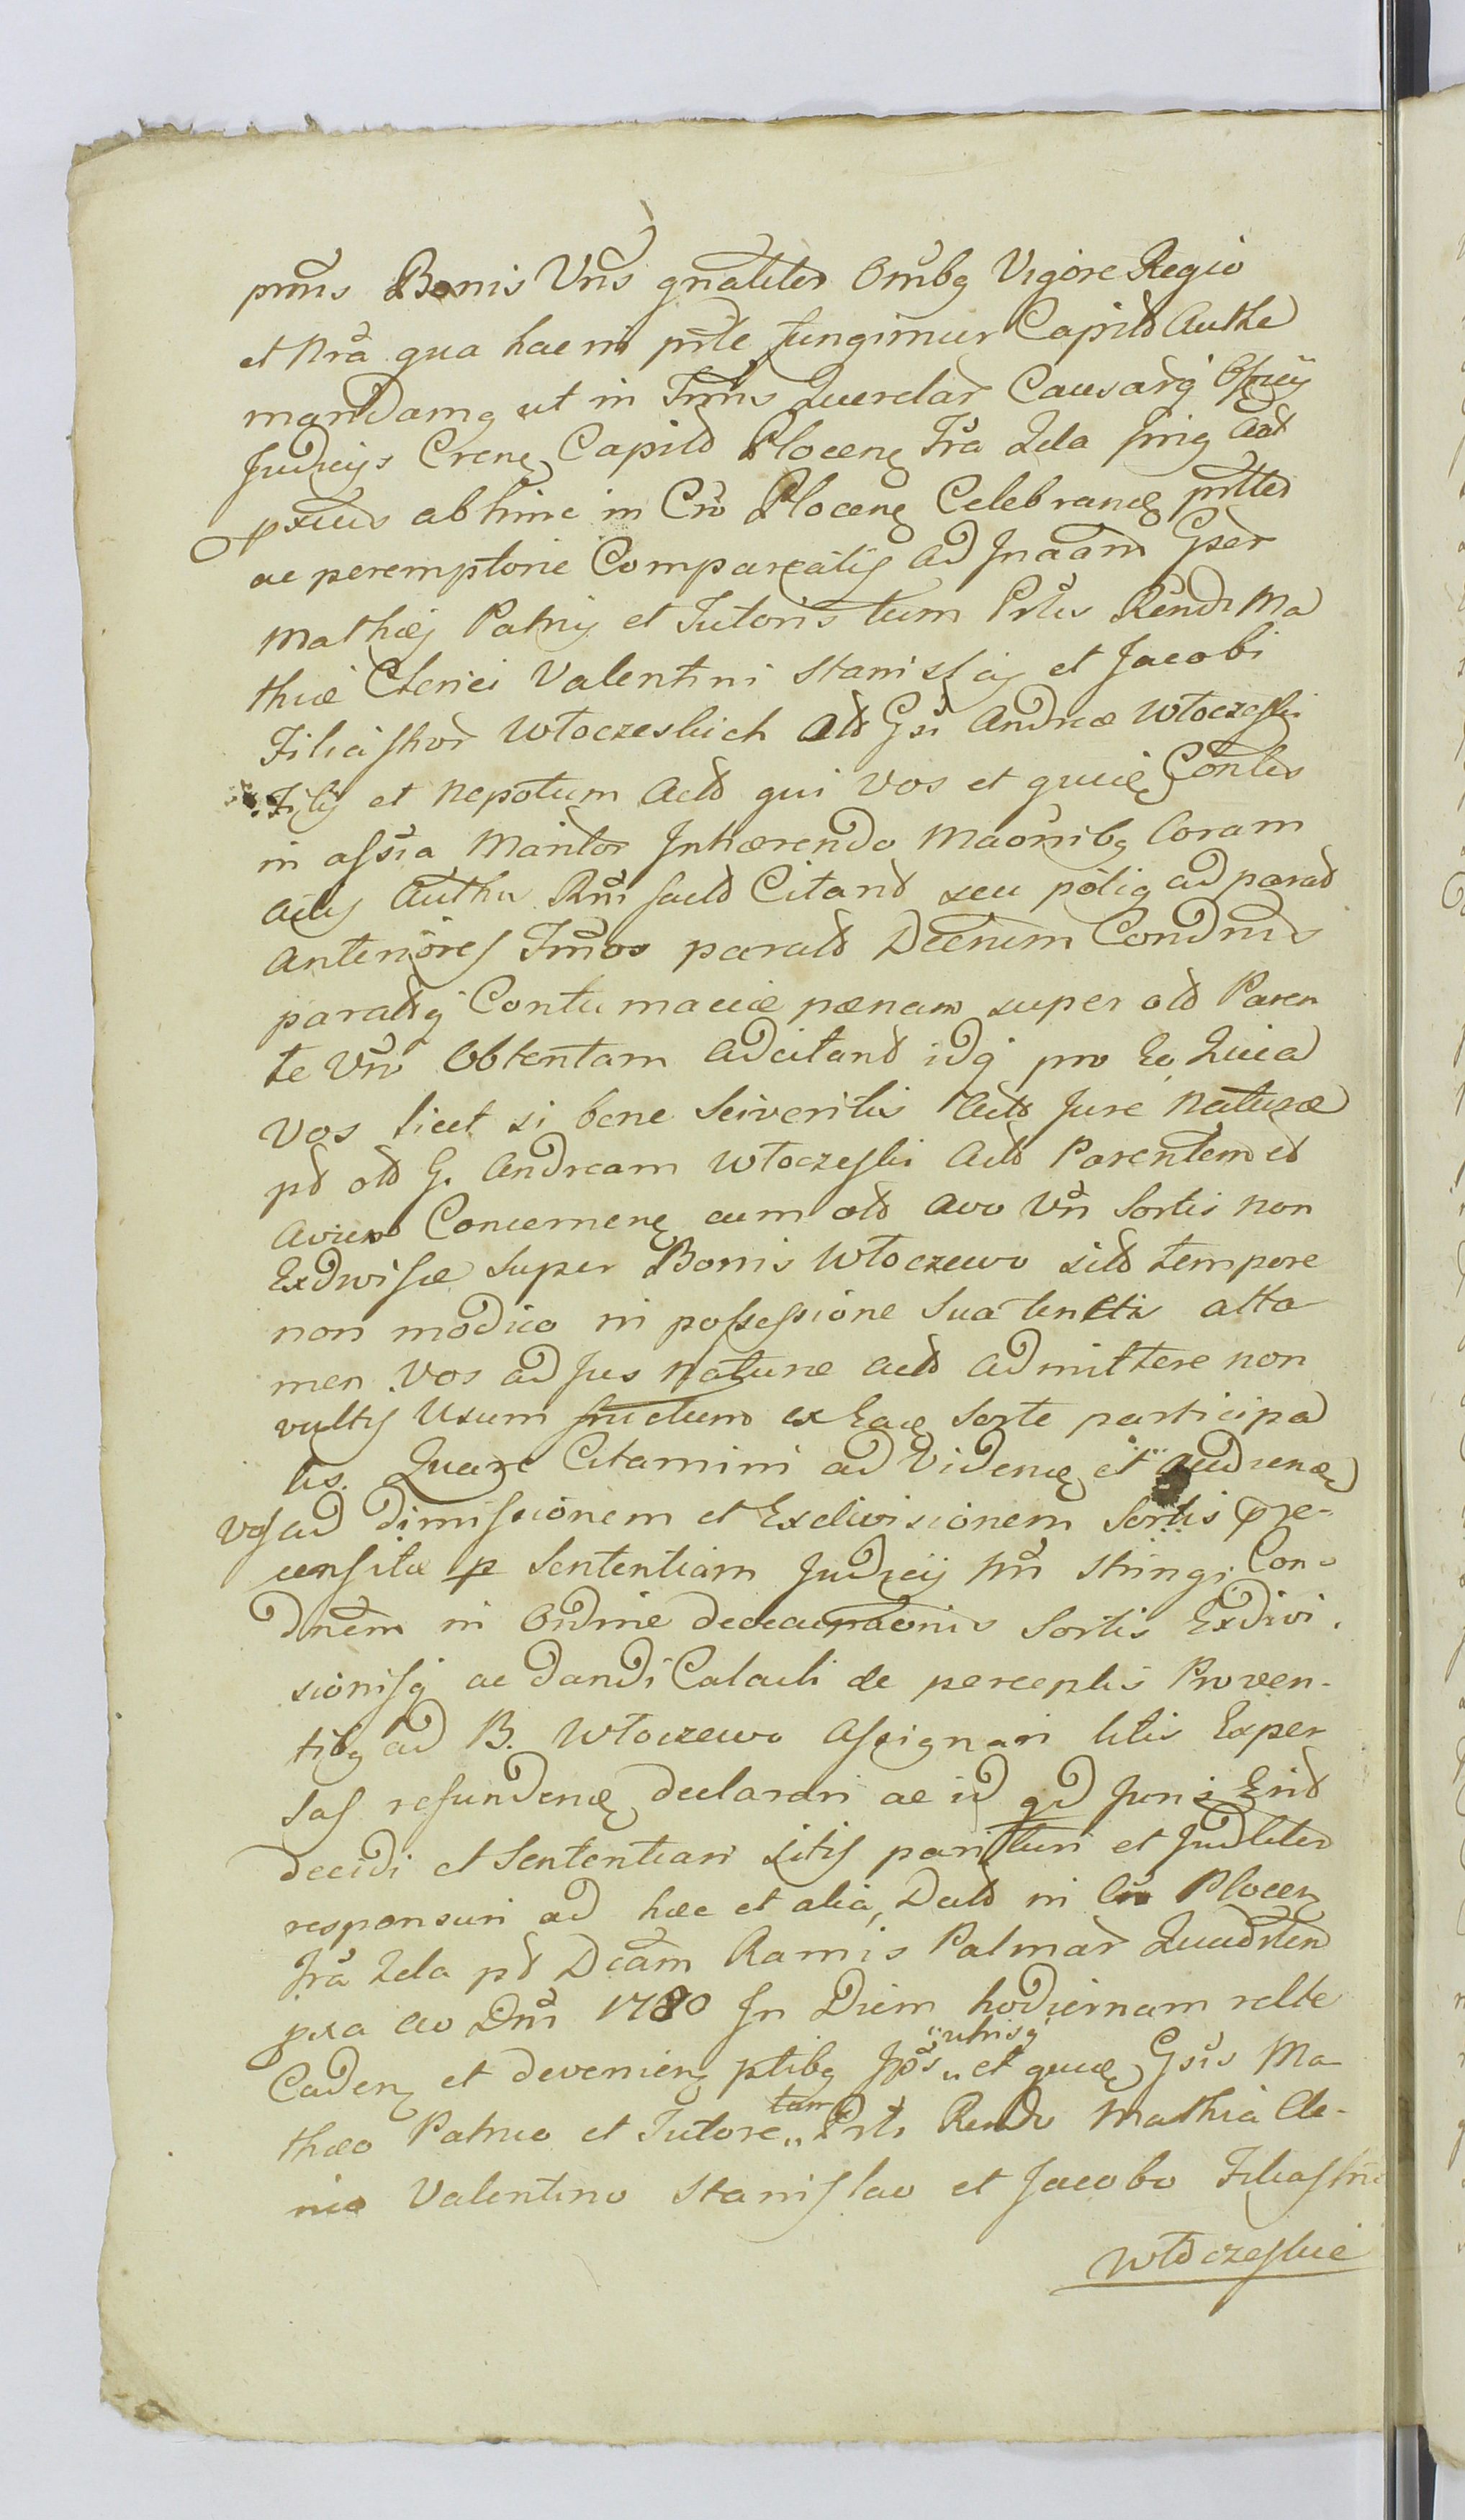 pmis Bonis Vris gnaliter Omibg Vigore Regio
et nrã qua hac in pñte fungimur Capitl Authe
mandamg ut in Trmis Querelar Causarg Officij
Judicijs Crens Capitl Plocens Fra 2da Jnig Aad
pximis abhinc in Crõ Plocens Celebrans pntter
ac peremptorie Compareatis ad Jnaam Gser
Mathiæ Patrij et Tutoris tum Prlis Rendi Ma
thiæ Clerici Valentini Stanislaj et Jacobi
Filiastror Wtoczeskich Old Gsi Andreæ Wtoczeski
Filij et Nepotum Actor qui Vos et quæ Conles
in assia Mantor Jnhærendo Maõnibg Coram
Authu facto Citand seu põlig ad parad
anteriores Tmos parald Dcenim Condms
paratsg Contumaciæ pænam super old Paren
te Vrõ Obtentam adcitand idg pro Eo Quia
Vos licet si bene Sciveritis Actor Jure Naturæ
pd old G. Andream Wtoczeski Actor Parentem et
Avum Concernens cum old Avo Vrõ Sortis non
Exdivisæ Super Bonis Wtoczewo sitis tempore
non modico in possessione Sua tentis atta
men Vos ad Jus Naturæ actor admittere non
vultis Usum fructum ex Eas Sorte participa
tis. Quare Citamini ad Videns et audiens
Vos ad dimissionem et Exdivisionem Sortis præ-
censitæ p Sententiam Judicij Nri Stringi Con-
dnem in Ordine deoccupaonis Sortis Exdivi
sionisg ac dandi Calculi de perceptis Proven-
tibg ad B. Wtoczewo Assignari litis Exper
sas refundens declarari ac id qd Juris Erit
decidi et Sententiari Sitis parituri et Judlter
responsuri ad hæc et alia, Datt in Crõ Plocen
Fra 2da pd Dcam Ramis Palmar Quadrlem
pxa Ao Dni 1780 Jn Diem hodiernam relte
Cadens et deveniens ptibg Jpis „utrisg" et quæ Gsis Ma
thæo Patruo et Tutore „tam" Prli Rendo Mathia Cle-
rico Valentino Stanislao et Jacobo Filiastri
Wtoczeskie